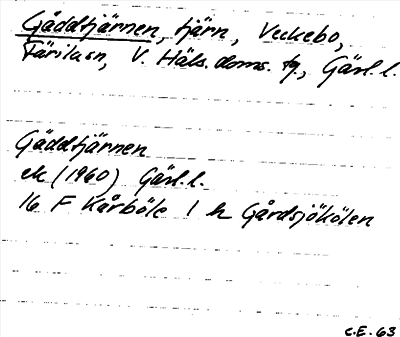 Gäddtjärnen, tjärn, Veckebo,
Färila sn, V. Häls. doms. tg, Gävl. l.
Gäddtjärnen
ek (1960) Gävl. l.
16 F Kårböle 1 h Gårdsjökölen
C.E. 63